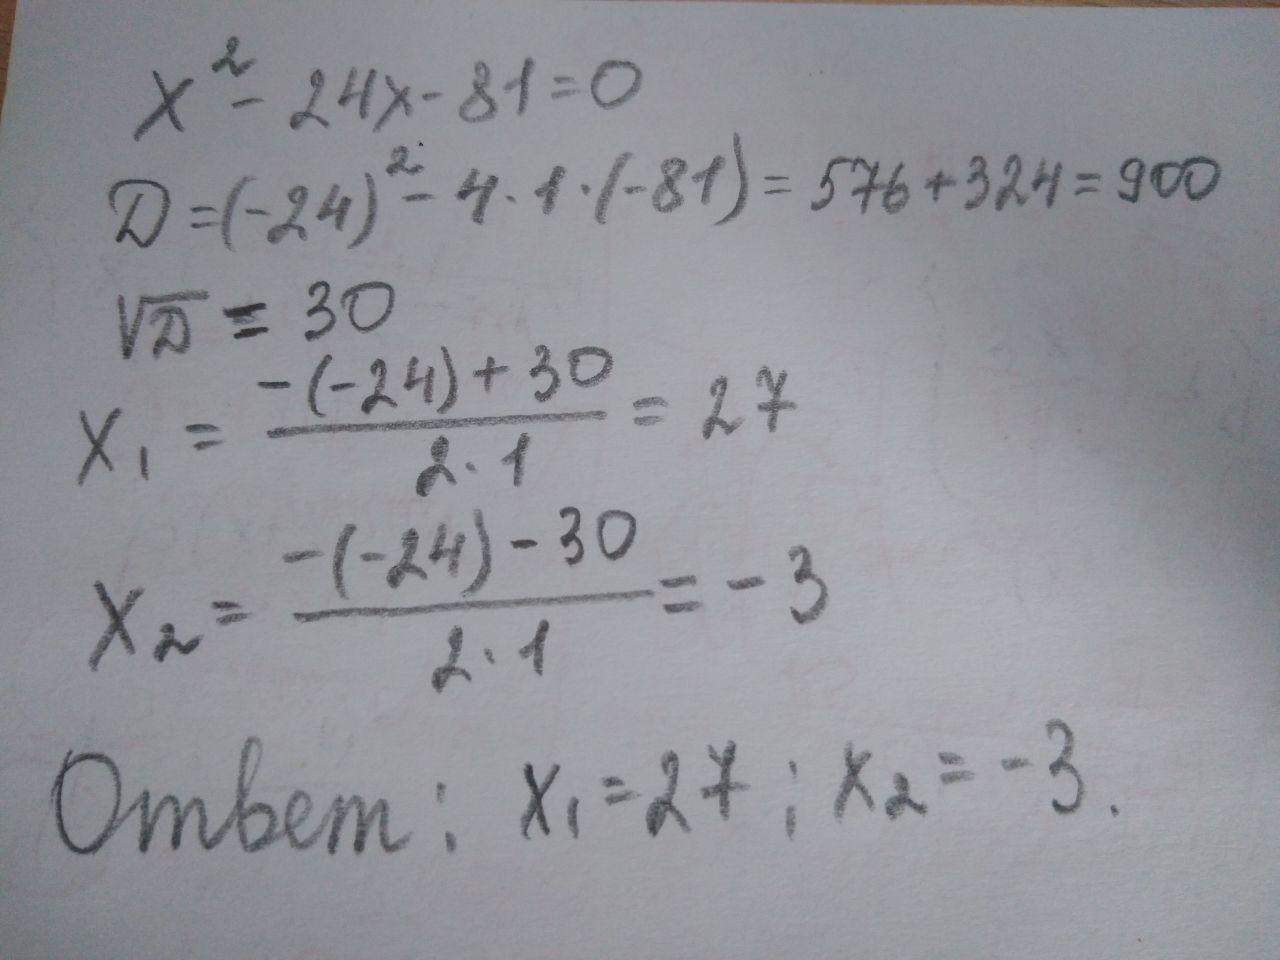 x² - 24x - 81 = 0
D = (-24)² - 4 · 1 · (-81) = 576 + 324 = 900
√D = 30
x₁ = (-(-24) + 30)/(2 · 1) = 27
x₂ = (-(-24) - 30)/(2 · 1) = -3
Ответ: x₁ = 27; x₂ = -3.